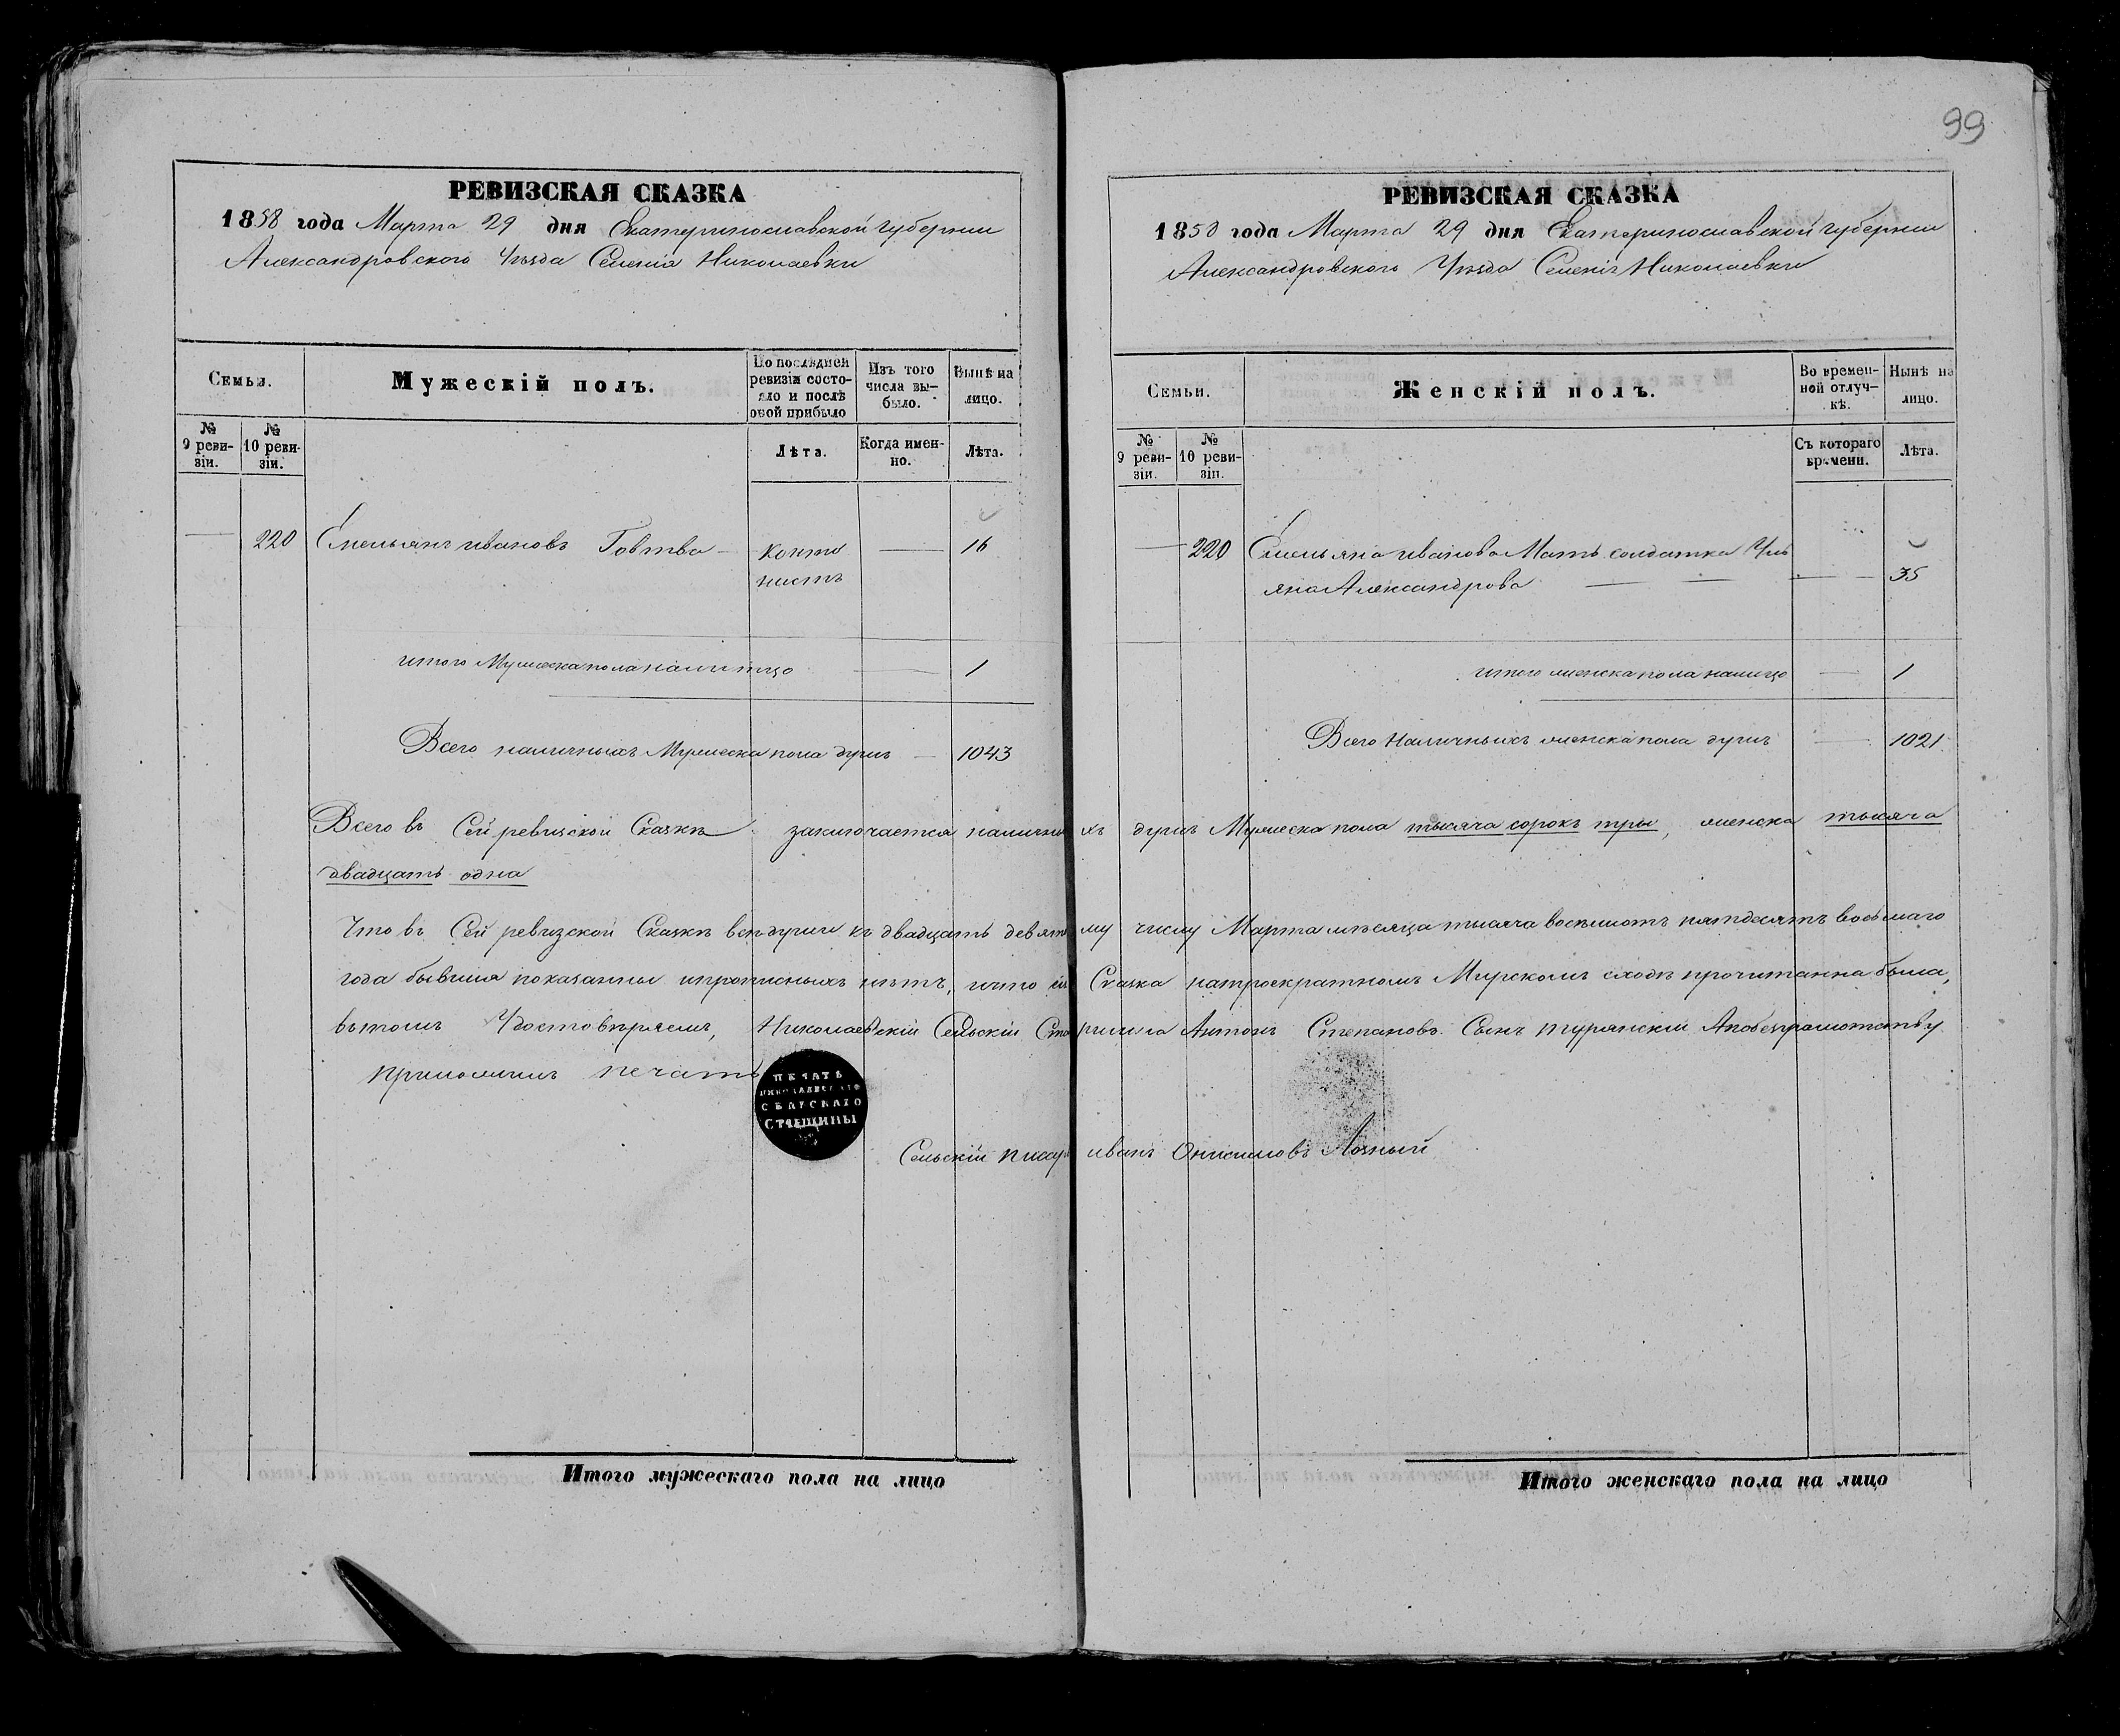 99
РЕВИЗСКАЯ СКАЗКА
1858 года Марта 29 дня Екатеринославской губернии
Александровского Уѣзда Селенія Николаевки
Семьи.
Мужескій полъ.
По послѣдней ревизіи состояло и послѣ оной прибыло
Изъ того числа выбыло.
Нынѣ на лицо.
№ 9 ревизіи.
№ 10 ревизіи.
Лѣта.
Когда именно.
Лѣта.
220 Емельянъ ивановъ Говтва — — 16
итого Мужеска пола налицо — 1
Всего наличныхъ Мужеска пола душъ — 1043
РЕВИЗСКАЯ СКАЗКА
1858 года Марта 29 дня Екатеринославской губернии
Александровского Уѣзда Селенія Николаевки
Семьи.
Женскій полъ.
Во временной отлучкѣ.
Нынѣ на лицо.
№ 9 ревизіи.
№ 10 ревизіи.
Съ котораго времени.
Лѣта.
— 220 Емельяна иванова Мать солдатка Уль
яна Александрова — — — 35
итого женска пола налицо — 1
Всего Наличныхъ женска пола душъ — 1021
Всего въ Сей ревизской Сказкѣ заключается наличныхъ душъ Мужеска пола тысяча сорокъ три, женска тысяча
двадцать одна
Что въ Сей ревизской Сказкѣ всѣ души къ двадцать девятому числу Марта мѣсяца тысяча восемьсотъ пятдесятъ восьмаго
года бывшия показанны и прописныхъ нѣтъ, и что сія Сказка на троекратномъ Мирскомъ сходѣ прочитанна была,
въ томъ Удостовѣряемъ, Николаевскій Сельскій Старшина Антонъ Степановъ Сынъ
печать
ПЕЧАТЬ
НИКОЛАЕВСКАГО
СЕЛЬСКАГО
СТАРШИНЫ
Сельскій писарь иванъ Онисимовъ
Итого мужескаго пола на лицо
Итого женскаго пола на лицо